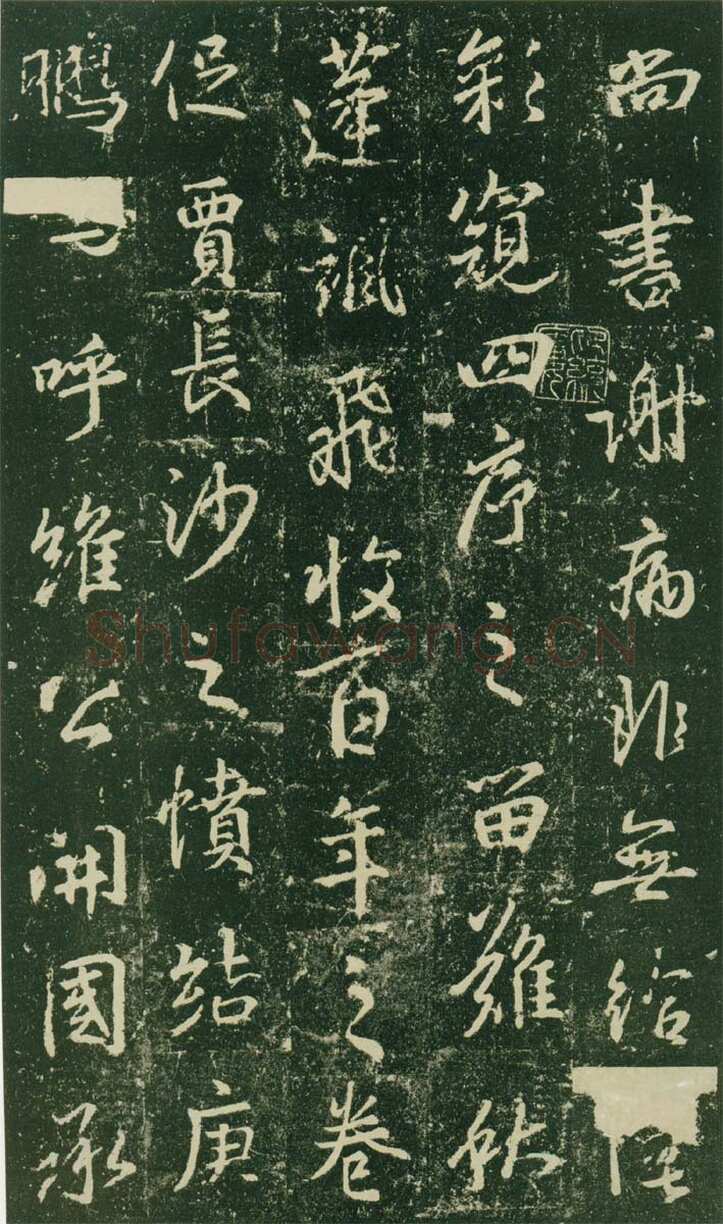 尚書謝病非無給
彩窺四序之留難秋
蓬飄飛收百年之卷
促賈長沙之憤結庚
鵩呼維公開國承
Shufawang.CN